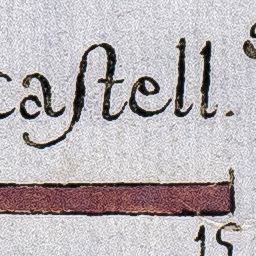 caſtell.
15